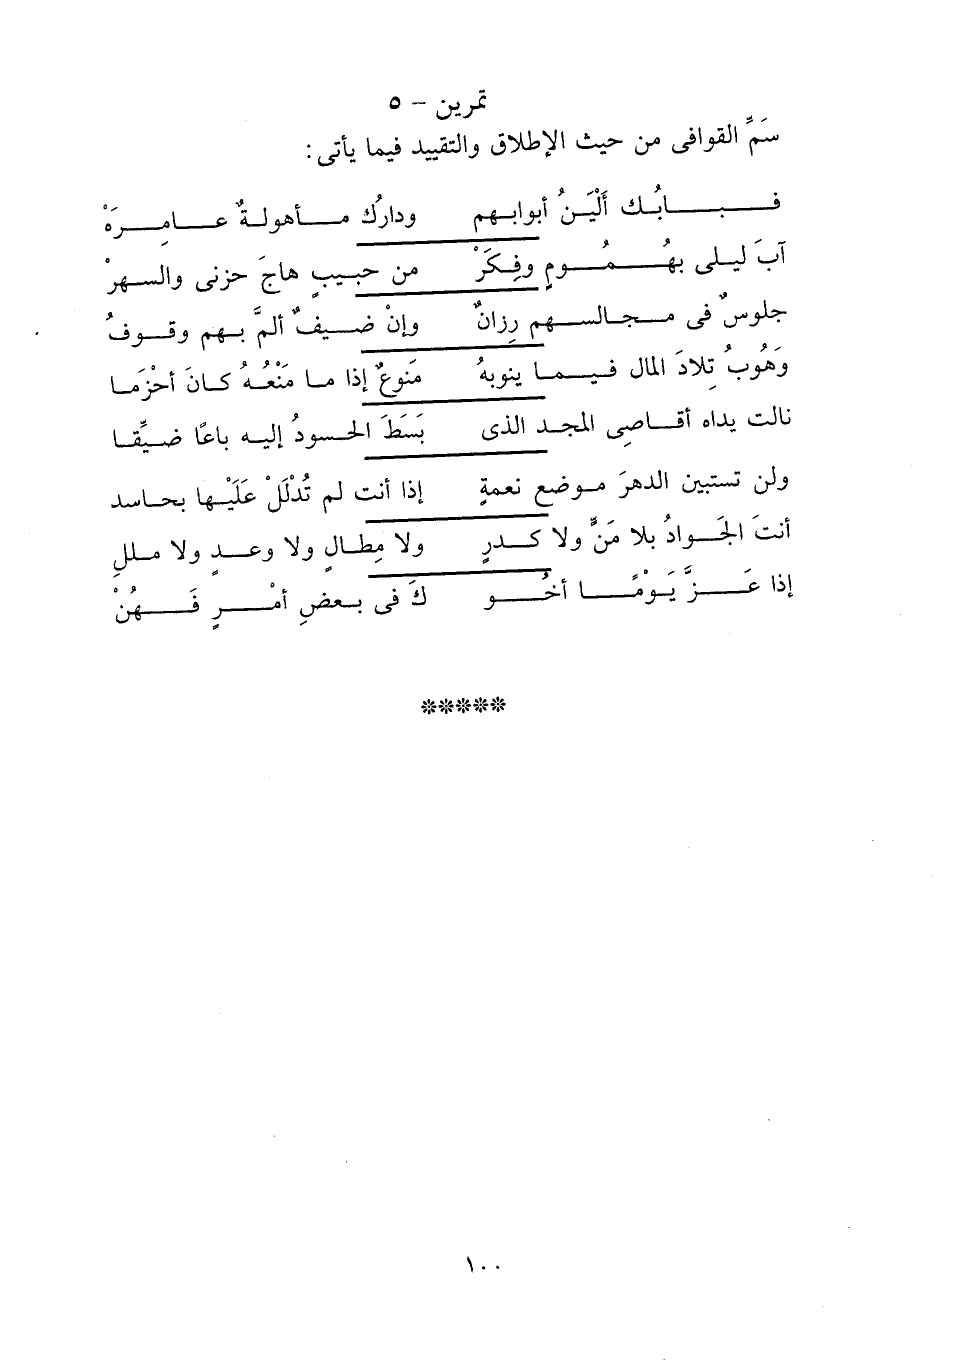 تمرين - ٥
سَمِّ القوافى من حيث الإطلاق والتقييد فيما يأتى:
فـبـابُـك أَلْيَنُ أبوابهم ودارُك مـأهولةٌ عـامِـرَهْ
آبَ ليلى بهُـمُـومٍ وفِكَرْ من حبيبٍ هاجَ حزنى والسهرْ
جلوسٌ فى مجالسهم رِزانٌ وإنْ ضيفٌ ألمَّ بهم وقوفُ
وَهُوبُ تِلادَ المال فيما ينوبهُ مَنوعٌ إذا ما مَنْعُهُ كانَ أحْزَما
نالت يداه أقاصِى المجد الذى بَسَطَ الحسودُ إليه باعًا ضيِّقا
ولن تستبين الدهرَ موضع نعمةٍ إذا أنت لم تُدْلَلْ عَلَيْها بحاسد
أنتَ الجَوادُ بلا مَنٍّ ولا كدرٍ ولا مِطالٍ ولا وعدٍ ولا مللِ
إذا عَـزَّ يَـوْمًـا أخُـو كَ فى بعضِ أمْرٍ فَهُنْ
*****
١٠٠